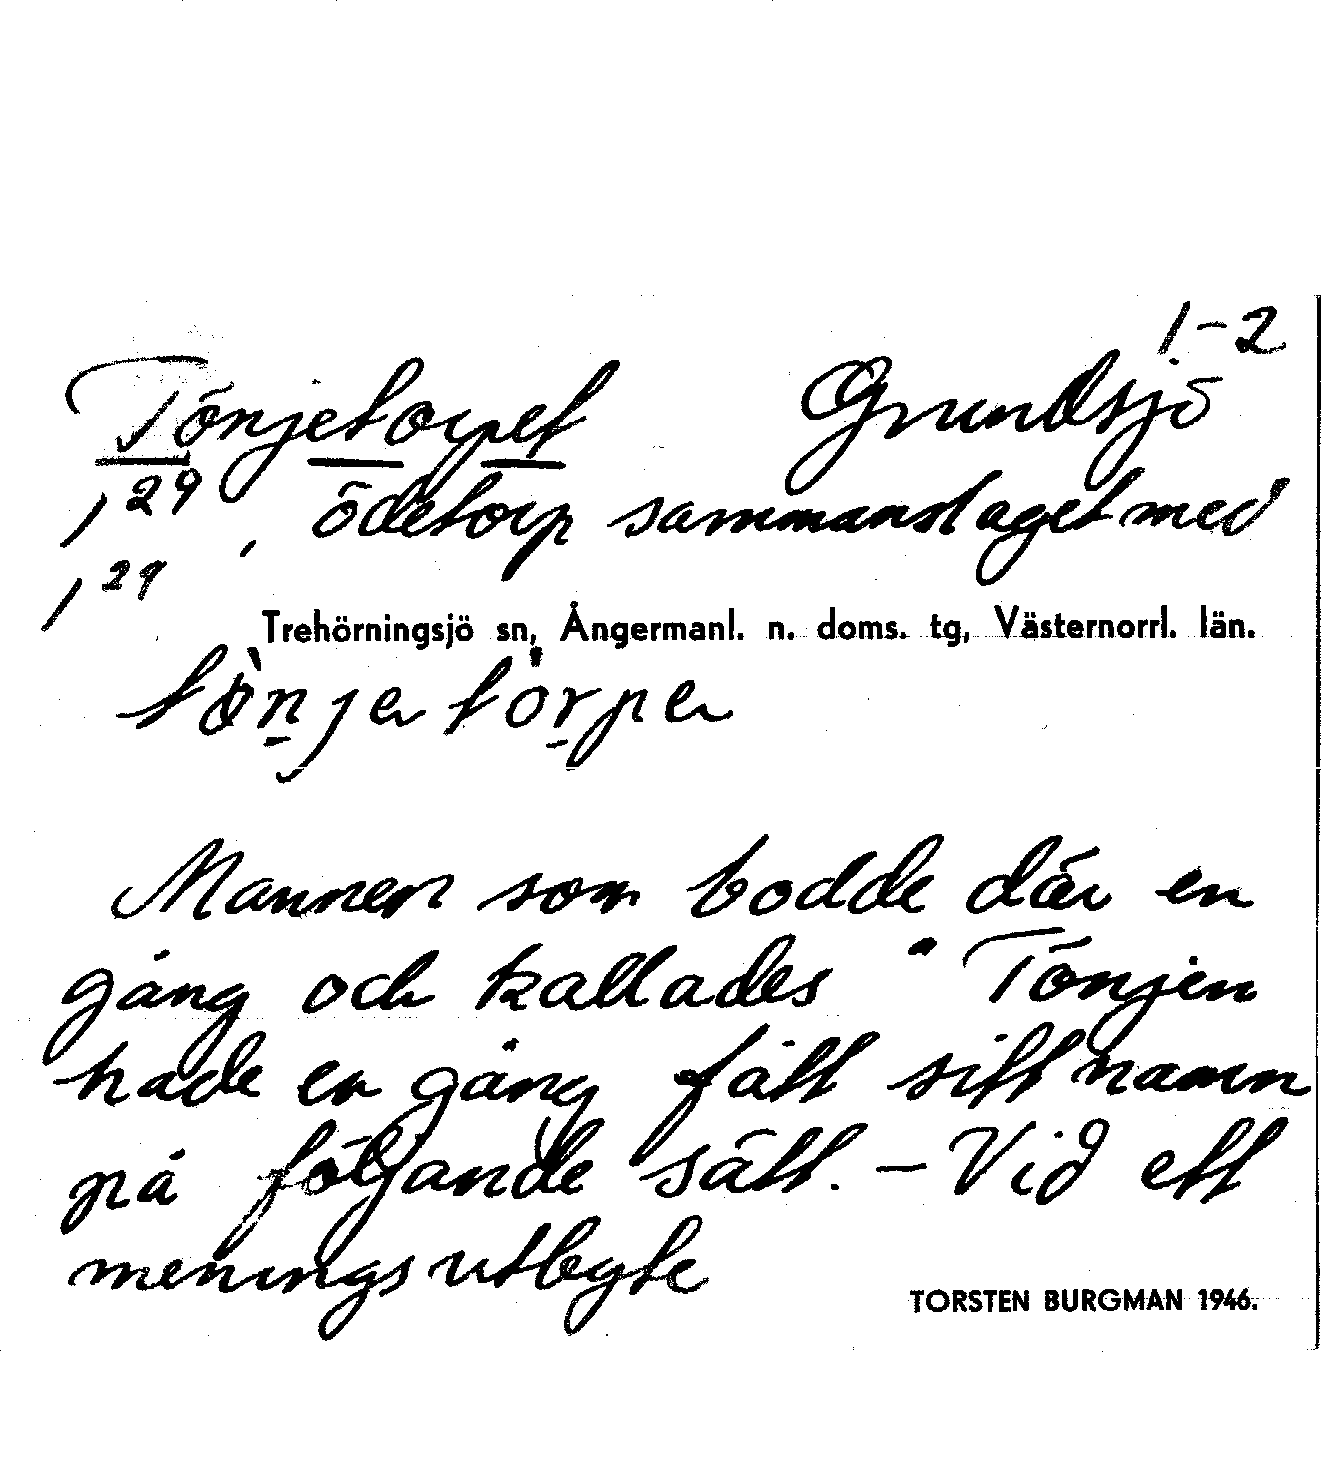 1-2
Tönjetorpet Grundsjö
1,29, ödetorp sammanslaget med
1,29
Trehörningsjö sn, Ångermanl. n. doms. tg, Västernorrl. län.
Mannen som bodde där en
gång och kallades "Tönjen
hade en gång fått sitt namn
på följande sätt. – Vid ett
meningsutbyte
TORSTEN BURGMAN 1946.